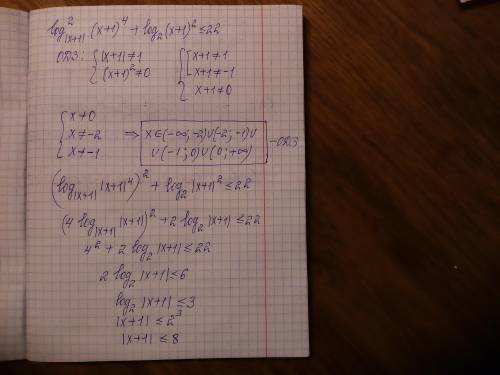 log²_|x+1| (x+1)⁴ + log₂(x+1)² ≤ 22
ОДЗ: { |x+1| ≠ 1 { [ x+1 ≠ 1
(x+1)² ≠ 0 x+1 ≠ -1
x+1 ≠ 0
{ x ≠ 0
x ≠ -2 ⇒ x ∈ (-∞; -2) ∪ (-2; -1) ∪
x ≠ -1 ∪ (-1; 0) ∪ (0; +∞) - ОДЗ
(log_|x+1| |x+1|⁴)² + log₂ |x+1|² ≤ 22
(4 log_|x+1| |x+1|)² + 2 log₂ |x+1| ≤ 22
4² + 2 log₂ |x+1| ≤ 22
2 log₂ |x+1| ≤ 6
log₂ |x+1| ≤ 3
|x+1| ≤ 2³
|x+1| ≤ 8